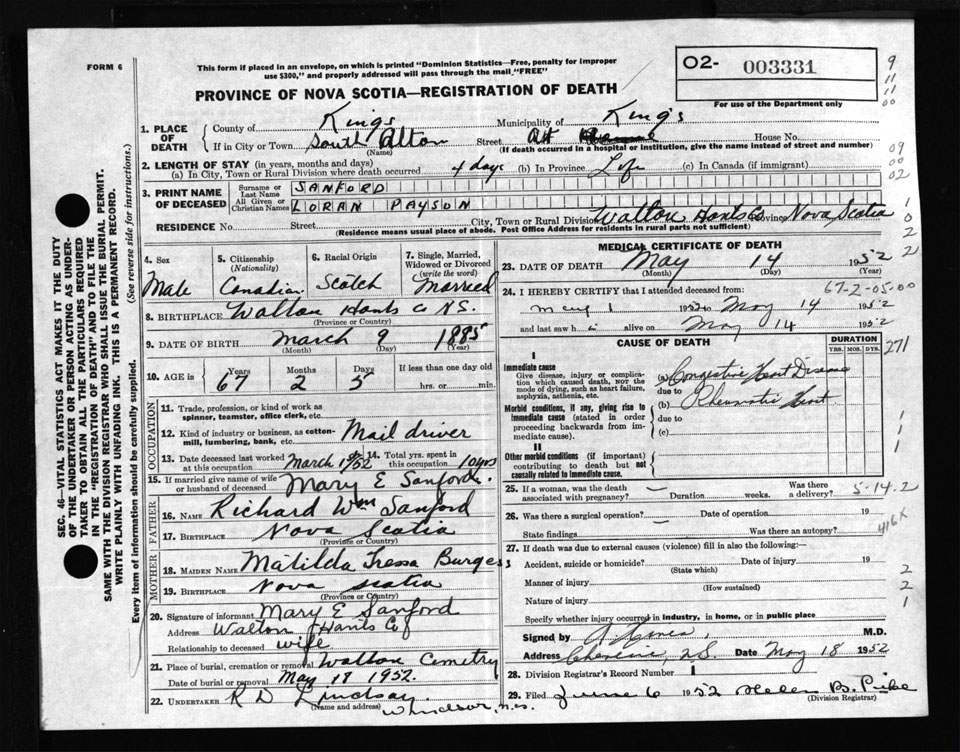 FORM 6
This form if placed in an envelope, on which is printed "Dominion Statistics—Free, penalty for improper
use $300," and properly addressed will pass through the mail "FREE"
O2- 003331
For use of the Department only
PROVINCE OF NOVA SCOTIA—REGISTRATION OF DEATH
9
11
11
00
09
00
02
1. PLACE OF DEATH
County of Kings Municipality of King's
If in City or Town South Alton Street At House No.
(Name) (If death occurred in a hospital or institution, give the name instead of street and number)
2. LENGTH OF STAY (in years, months and days)
(a) In City, Town or Rural Division where death occurred 4 days (b) In Province Life (c) In Canada (if immigrant)
3. PRINT NAME OF DECEASED
Surname or Last Name SANFORD
All Given or Christian Names LORAN PAYSON
RESIDENCE No. Street City, Town or Rural Division Walton Hants Co Province Nova Scotia
(Residence means usual place of abode. Post Office Address for residents in rural parts not sufficient)
4. Sex Male
5. Citizenship (Nationality) Canadian
6. Racial Origin Scotch
7. Single, Married, Widowed or Divorced (write the word) Married
8. BIRTHPLACE Walton Hants Co N.S.
(Province or Country)
9. DATE OF BIRTH March 9 1885
(Month) (Day) (Year)
10. AGE in Years 67 Months 2 Days 5 If less than one day old
hrs. or min.
OCCUPATION
11. Trade, profession, or kind of work as
spinner, teamster, office clerk, etc.
12. Kind of industry or business, as cotton-
mill, lumbering, bank, etc. Mail driver
13. Date deceased last worked at this occupation March 1952
14. Total yrs. spent in this occupation 10 yrs
15. If married give name of wife or husband of deceased Mary E Sanford.
FATHER
16. NAME Richard Wm Sanford
17. BIRTHPLACE Nova Scotia
(Province or Country)
MOTHER
18. MAIDEN NAME Matilda Tressa Burgess
19. BIRTHPLACE Nova Scotia
(Province or Country)
20. Signature of informant Mary E Sanford
Address Walton Hants Co
Relationship to deceased wife
21. Place of burial, cremation or removal Walton Cemetry
Date of burial or removal May 18 1952.
22. UNDERTAKER R D Lindsay.
(Name and address) Windsor, N.S.
MEDICAL CERTIFICATE OF DEATH
23. DATE OF DEATH May 14 1952
(Month) (Day) (Year)
24. I HEREBY CERTIFY that I attended deceased from: 67-2-05-00
May 1 1952 to May 14 1952
and last saw h i alive on May 14 1952
CAUSE OF DEATH
DURATION
YRS. MOS. DYS.
271
I
Immediate cause
Give disease, injury or complica-
tion which caused death, NOT the
mode of dying, such as heart failure,
asphyxia, asthenia, etc.
(a) Congestive Heart Disease
due to
Morbid conditions, if any, giving rise to
immediate cause (stated in order
proceeding backwards from im-
mediate cause).
(b) Rheumatic Heart
due to
(c)
II
Other morbid conditions (if important)
contributing to death but not
causally related to immediate cause.
25. If a woman, was the death associated with pregnancy? — Duration weeks. Was there a delivery? 5-14.2
26. Was there a surgical operation? — Date of operation 19
State findings Was there an autopsy?
416X
27. If death was due to external causes (violence) fill in also the following:—
Accident, suicide or homicide? Date of injury 19
(State which)
Manner of injury
(How sustained)
Nature of injury
Specify whether injury occurred in industry, in home, or in public place
Signed by M.D.
Address Cheverie, N.S. Date May 18 1952
28. Division Registrar's Record Number 1
29. Filed June 6 1952 Helen B.
(Division Registrar)
1
0
2
2
1
1
1
2
2
1
SEC. 46—VITAL STATISTICS ACT MAKES IT THE DUTY
OF THE UNDERTAKER OR PERSON ACTING AS UNDER-
TAKER TO OBTAIN ALL THE PARTICULARS REQUIRED
IN THE "REGISTRATION OF DEATH" AND TO FILE THE
SAME WITH THE DIVISION REGISTRAR WHO SHALL ISSUE THE BURIAL PERMIT.
WRITE PLAINLY WITH UNFADING INK. THIS IS A PERMANENT RECORD.
Every item of information should be carefully supplied. (See reverse side for instructions.)